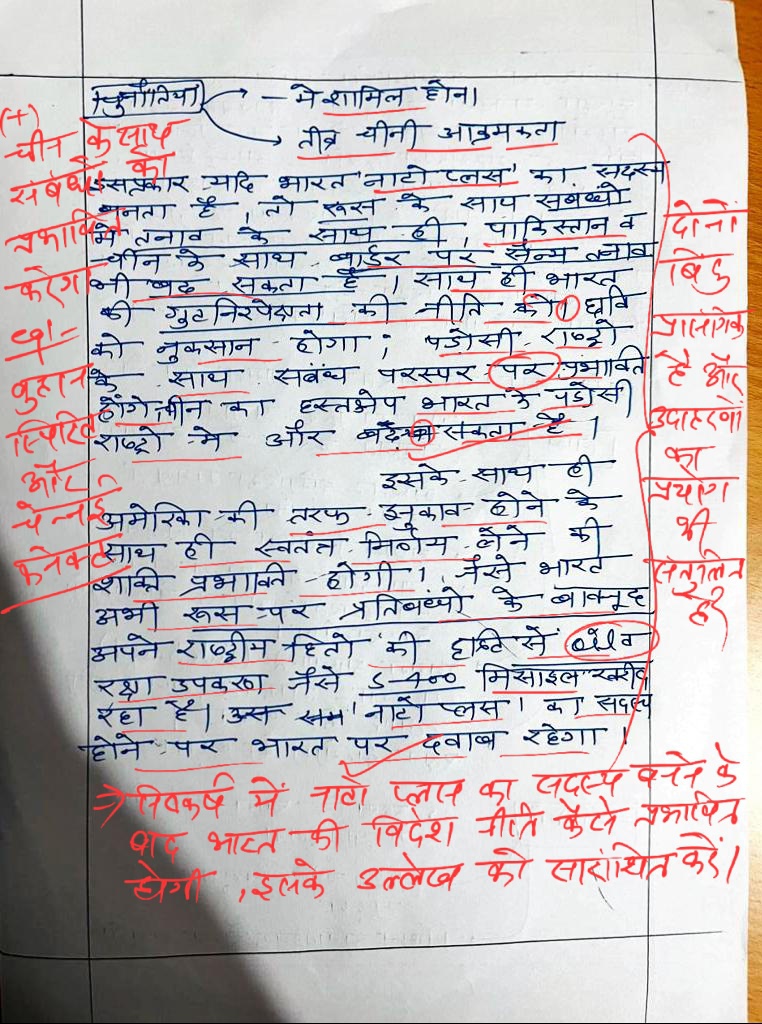 चुनौतियां
- मे शामिल होना
तीव्र चीनी आक्रमकता
इसप्रकार यदि भारत 'नाटो प्लस' का सदस्य
बनता है, तो रूस के साथ सबंधो
मे तनाव के साथ ही, पाकिस्तान व
चीन के साथ बार्डर पर सैन्य तनाव
भी बढ़ सकता है। साथ ही भारत
की गुटनिरपेक्षता की नीति की छवि
को नुकसान होगा; पड़ोसी राष्ट्रो
के साथ सबंध परस्पर पर प्रभावि
होंगे चीन का हस्तक्षेप भारत के पड़ोसी
राष्ट्रो मे और बढ़ सकता है।
इसके साथ ही
अमेरिका की तरफ झुकाव होने के
साथ ही स्वतंत्र निर्णय लेने की
शाक्ति प्रभावित होगी। जैसे भारत
अभी रूस पर प्रतिबंधो के बावजूद
अपने राष्ट्रीय हितो की दृष्टि से oil व
रक्षा उपकरण जैसे S-400 मिसाइल खरीद
रहा है। उस 'नाटो प्लस' का सदस्य
होने पर भारत पर दवाब रहेगा।
(+)
चीन के साथ
संबंधों को
प्रभावित
करेगा
छा-
वुहान
स्पिरिट
और
चेन्नई
कनेक्ट
दोनों
बिंदु
प्रासंगिक
है और
उदाहरणों
का
प्रयोग
भी
संतुलित
है
⇒ निष्कर्ष में नाटो प्लस का सदस्य बनने के
बाद भारत की विदेश नीति कैसे प्रभावित
होगी, इसके उल्लेख को सारांशित करें।